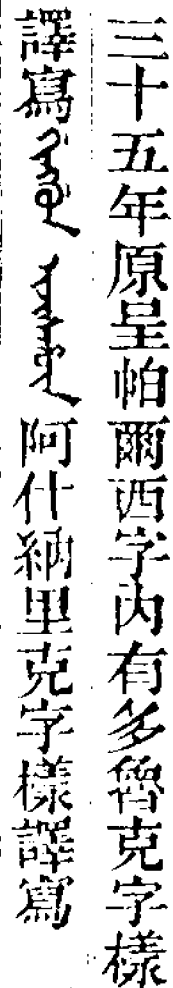 三十五年原呈帕爾西字內有多魯克字樣
譯寫 阿什納里克字樣譯寫